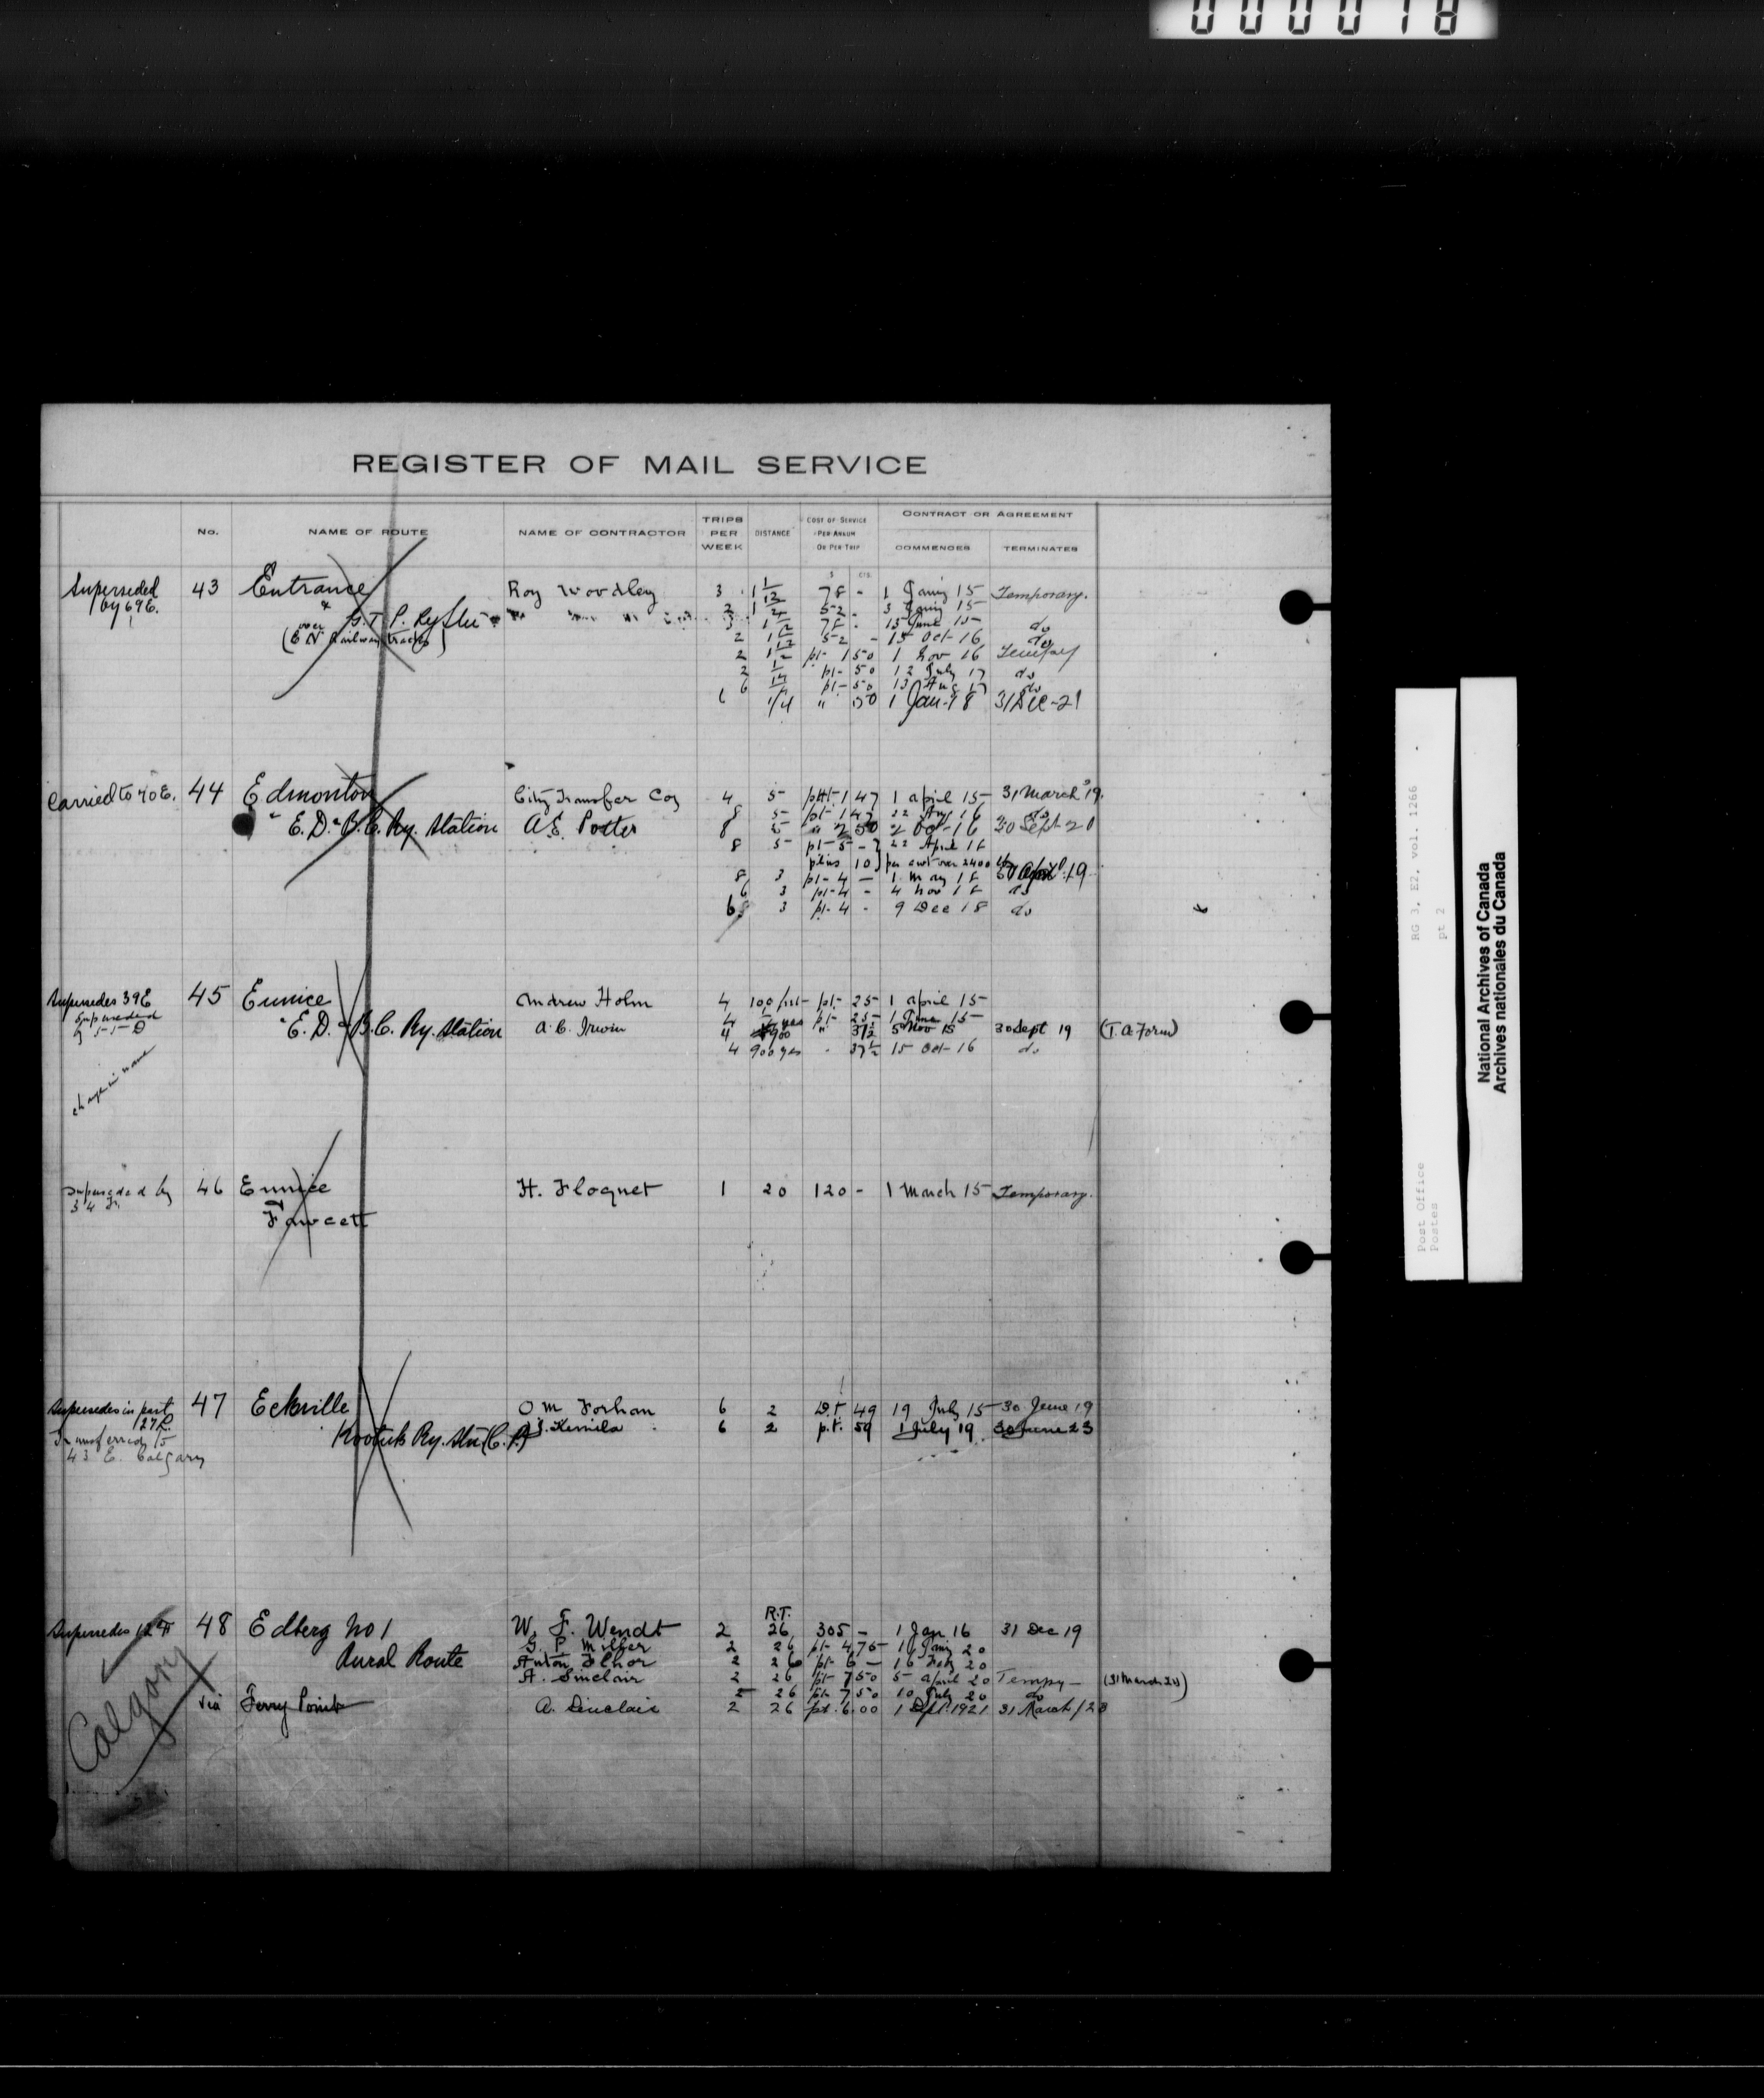 000018
REGISTER OF MAIL SERVICE
No. NAME OF ROUTE NAME OF CONTRACTOR TRIPS PER WEEK DISTANCE COST OF SERVICE PER ANNUM OR PER TRIP CONTRACT OR AGREEMENT COMMENCES TERMINATES
$ CTS.
Superseded 43 Entrance Roy Woodley 3 1 1/2 78 - 1 Jany 15 Temporary.
by 69 E. & 2 1 1/2 52 - 3 Jany 15
G.T.P. Ry Stn 3 1 1/2 78 - 15 June 15 do
(over C N Railway tracks) 2 1 1/2 52 - 15 Oct 16 do
2 1 1/2 pt- 1 50 1 Nov 16 Tempy
2 pt- 50 12 July 17 do
6 1/4 pt- 50 13 Aug 17 do
6 1/4 " 50 1 Jan-18 31 Dec-21
Carried to 70 E. 44 Edmonton City Transfer Coy 4 5 prt- 1 47 1 April 15 31 March 19.
8 5 pt- 1 47 22 Aug 16 do
& E.D. & B.C. Ry. Station A.E. Potter 8 5 " 2 50 2 Oct-16 30 Sept-20
8 5 pt- 5 - 22 April 18
plus 10 per cwt over 2400 lbs
8 3 pt- 4 - 1 May 18 30 April 19
6 3 pt- 4 - 4 Nov 18 do
6 3 pt- 4 - 9 Dec 18 do
Supersedes 39 E 45 Eunice Andrew Holm 4 100 pt- 25 1 April 15
Superseded 4 pt- 25 1 June 15
by & E.D. & B.C. Ry. Station A.C. Irwin 4 900 " 37 1/2 5 Nov 15 30 Sept 19 (T.A. Form)
4 900 yds 37 1/2 15 Oct-16 do
change in name
Superseded by 46 Eunice H. Floquet 1 20 120 - 1 March 15 Temporary.
34 F.
& Fawcett
Supersedes in part 47 Eckville O M Forhan 6 2 p.t. 49 19 July 15 30 June 19
127 R. Kootuk Ry. Stn (C.P.) J. Kimila 6 2 p.t. 59 1 July 19 30 June 23
Transferred to
43 E. Calgary
R.T.
Supersedes 12 F 48 Edberg No 1 W. F. Wendt 2 26 305 - 1 Jan 16 31 Dec 19
G. P. Miller 2 26 pt- 4 75 1 Jany 20
Rural Route Anton Flhor 2 26 pt- 6 - 16 Feby 20
A. Sinclair 2 26 pt- 7 50 5 April 20 Tempy - (31 March 20)
2 26 pt- 7 50 10 July 20 do
via Ferry Point A. Sinclair 2 26 pt. 6.00 1 Sept. 1921 31 March/23
Calgary
RG 3, E2, vol. 1266
pt 2
Post Office
Postes
National Archives of Canada
Archives nationales du Canada